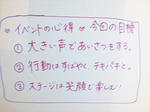 ☆イベントの心得☆今回の目標
① 大きい声であいさつをする。
② 行動はすばやく テキパキと。
③ ステージは笑顔で楽しむ!